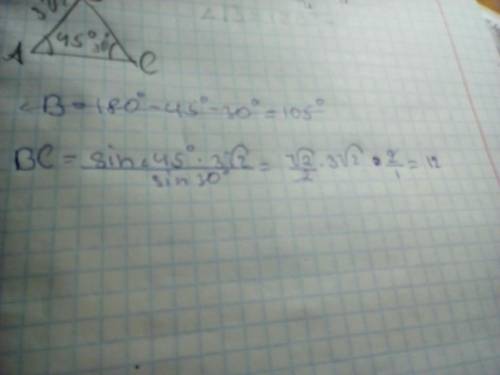 3√2
A 45° 30° C
∠B = 180° - 45° - 30° = 105°
BC = sin∠45° · 3√2 / sin 30° = √2/2 · 3√2 · 2/1 = 12